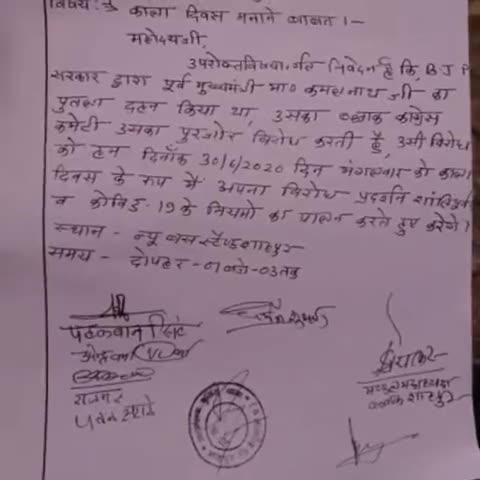 विषय :- काला दिवस मनाने बाबत ।-
महोदयजी,
उपरोक्त विषयांर्गत निवेदन है कि, B J P
सरकार द्वारा पूर्व मुख्यमंत्री मा० कमलनाथ जी का
पुतला दहन किया था, उसका ब्लाक कांग्रेस
कमेटी उसका पुरजोर विरोध करती है, उसी विरोध
को हम दिनाँक 30/6/2020 दिन मंगलवार को काला
दिवस के रूप में अपना विरोध प्रदर्शन शांतिपूर्व
व कोविड-19 के नियमो का पालन करते हुए करेगे।
स्थान - न्यू बस स्टैण्ड शाहपुर
समय - दोपहर - 01 बजे - 03 तक
पहलवान सिंह
ब्लाक शाहपुर